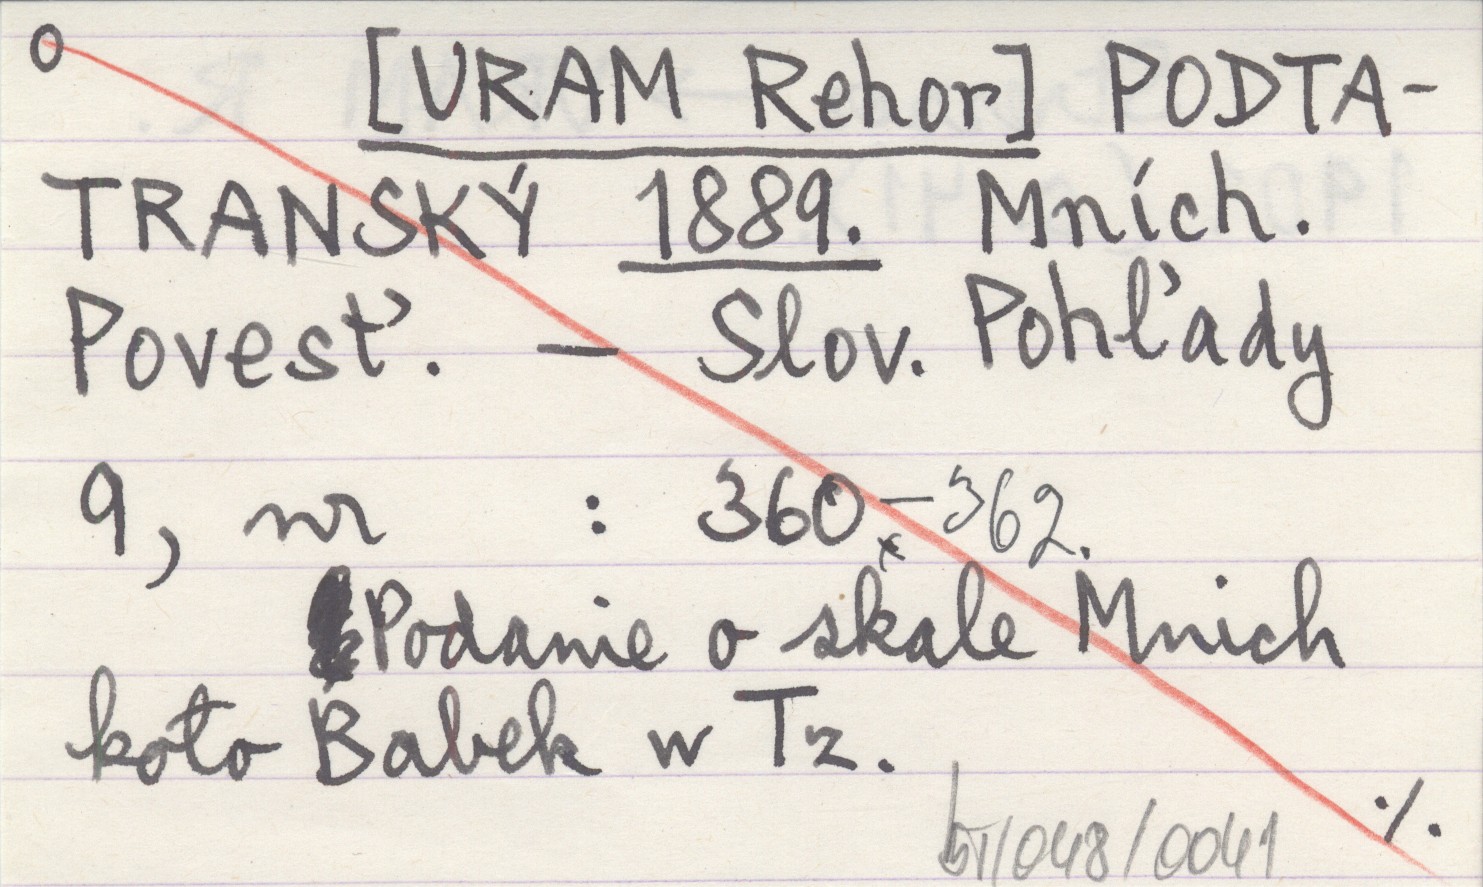 O [URAM Rehor] PODTA-
TRANSKÝ 1889. Mních.
Povesť. — Slov. Pohľady
9, nr : 360 – 362.
Podanie o skale Mnich
koło Babek w Tz.
./.
/048/0041